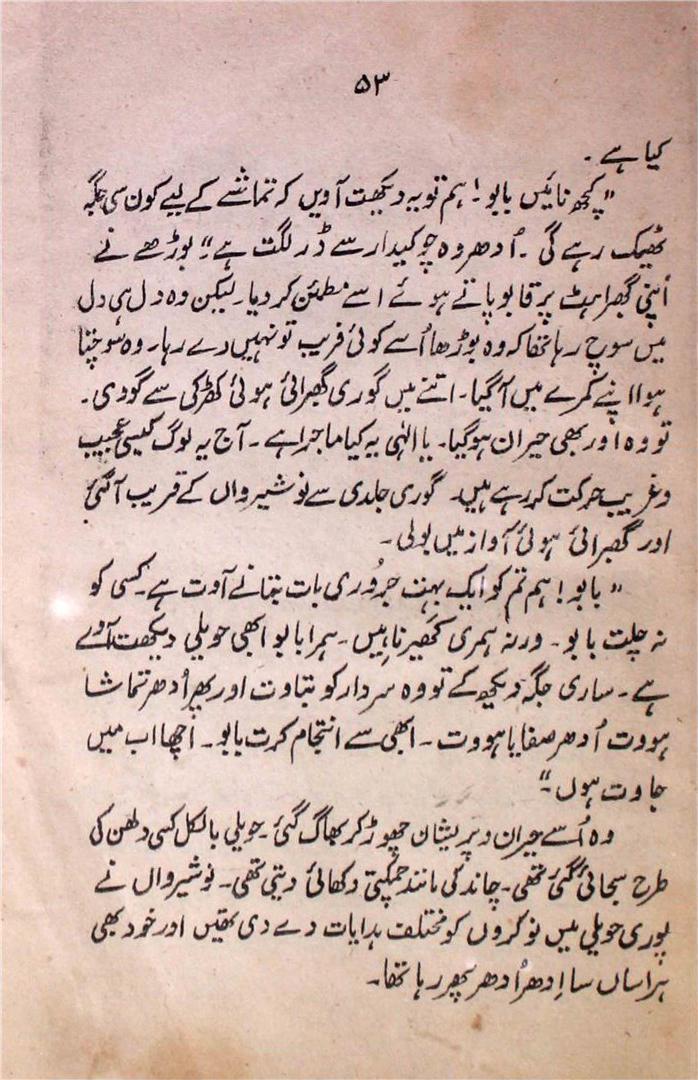 ۵۳
کیا ہے ۔
"کچھ نائیں بابو! ہم تو یہ دیکھت آویں کہ تماشے کے لیے کون سی جگہ
ٹھیک رہے گی ۔ اُدھر وہ چوکیدار سے ڈر لگت ہے۔" بوڑھے نے
اپنی گھبراہٹ پر قابو پاتے ہوئے اسے مطمئن کر دیا۔ لیکن وہ دل ہی دل
میں سوچ رہا تھا کہ وہ بوڑھا اُسے کوئی فریب تو نہیں دے رہا۔ وہ سوچتا
ہوا اپنے کمرے میں آ گیا۔ اتنے میں گوری گھبرائی ہوئی کھڑکی سے کودی۔
تو وہ اور بھی حیران ہو گیا۔ یا الٰہی یہ کیا ماجرا ہے ۔ آج یہ لوگ کیسی عجیب
و غریب حرکت کر رہے ہیں۔ گوری جلدی سے نوشیرواں کے قریب آ گئی
اور گھبرائی ہوئی آواز میں بولی ۔
"بابو! ہم تم کو ایک بہت جروری بات بتانے آوت ہے۔ کسی کو
نہ چلت بابو۔ ورنہ ہمری کھیر ناہیں۔ ہمرا بابو ابھی حویلی دیکھت آوے
ہے۔ ساری جگہ دیکھ کے تو وہ سردار کو بتاوت اور پھر اُدھر تماشا
ہووت اُدھر صفایا ہووت ۔ ابھی سے انتجام کرت بابو۔ اچھا اب میں
جاوت ہوں۔"
وہ اُسے حیران و پریشان چھوڑ کر بھاگ گئی۔ حویلی بالکل کسی دلھن کی
طرح سجائی گئی تھی۔ چاند کی مانند چمکتی دکھائی دیتی تھی۔ نوشیرواں نے
پوری حویلی میں نوکروں کو مختلف ہدایات دے دی تھیں اور خود بھی
ہراساں سا اِدھر اُدھر پھر رہا تھا۔